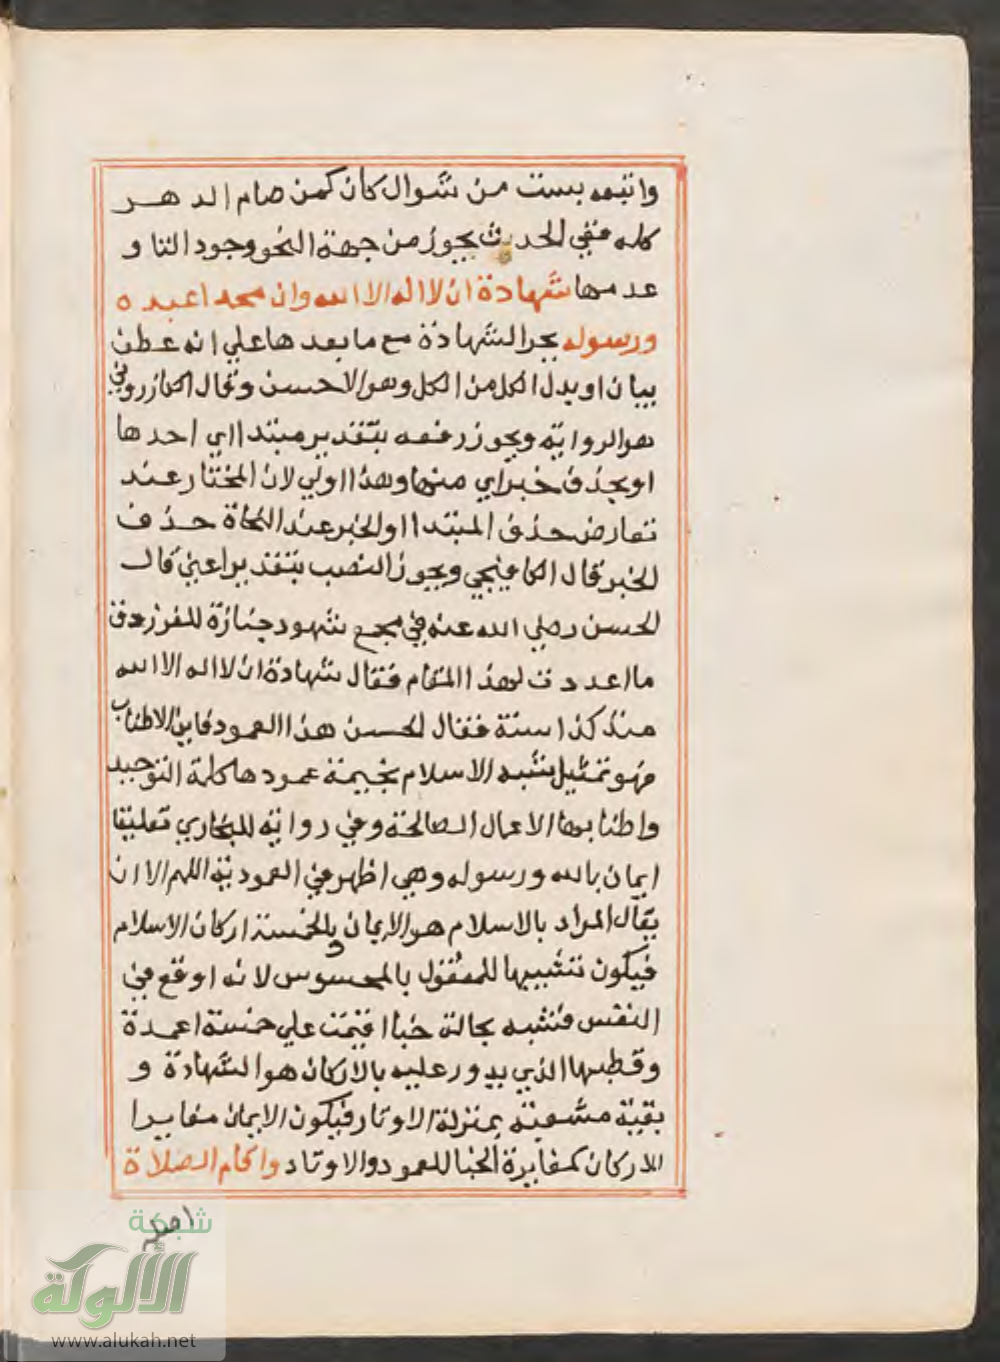 واتبعه بست من شوال كان كمن صام الدهر
كله ففي الحديث يجوز من جهة النحو وجود التا و
عدمها شهادة ان لا اله الا الله وان محمدا عبده
ورسوله بجر الشهادة مع ما بعدها علي انه عطف
بيان او بدل الكل من الكل وهو الاحسن وقال الكازروني
هو الرواية ويجوز رفعه بتقدير مبتدا اي احدها
او بحذف خبر اي منها وهذا اولي لان المختار عند
تعارض حذف المبتدا او الخبر عند النحاة حذف
الخبر قال الكافيجي ويجوز النصب بتقدير اعني قال
الحسن رضي الله عنه في مجمع شهود جنازة للفرزدق
ما اعددت لهذا المقام فقال شهادة ان لا اله الا الله
منذ كذا سنة فقال الحسن هذا العمود فاين الاطناب
فهو تمثيل بشبه الاسلام بخيمة عمودها كلمة التوحيد
واطنابها الاعمال الصالحة وفي رواية للبخاري تعليقا
ايمان بالله ورسوله وهي اظهر في العمودية اللهم الا ان
يقال المراد بالاسلام هو الايمان وبالخمسة اركان الاسلام
فيكون تشبيها للمعقول بالمحسوس لانه اوقع في
النفس فشبه بحالة خبا اقيمت علي خمسة اعمدة
وقطبها الذي يدور عليه بالاركان هو الشهادة و
بقية مشعبة بمنزلة الاوتار فيكون الايمان مغايرا
للاركان كمغايرة الخبا للعمود والاوتاد واقام الصلاة
اصله
شبكة
الألوكة
www.alukah.net